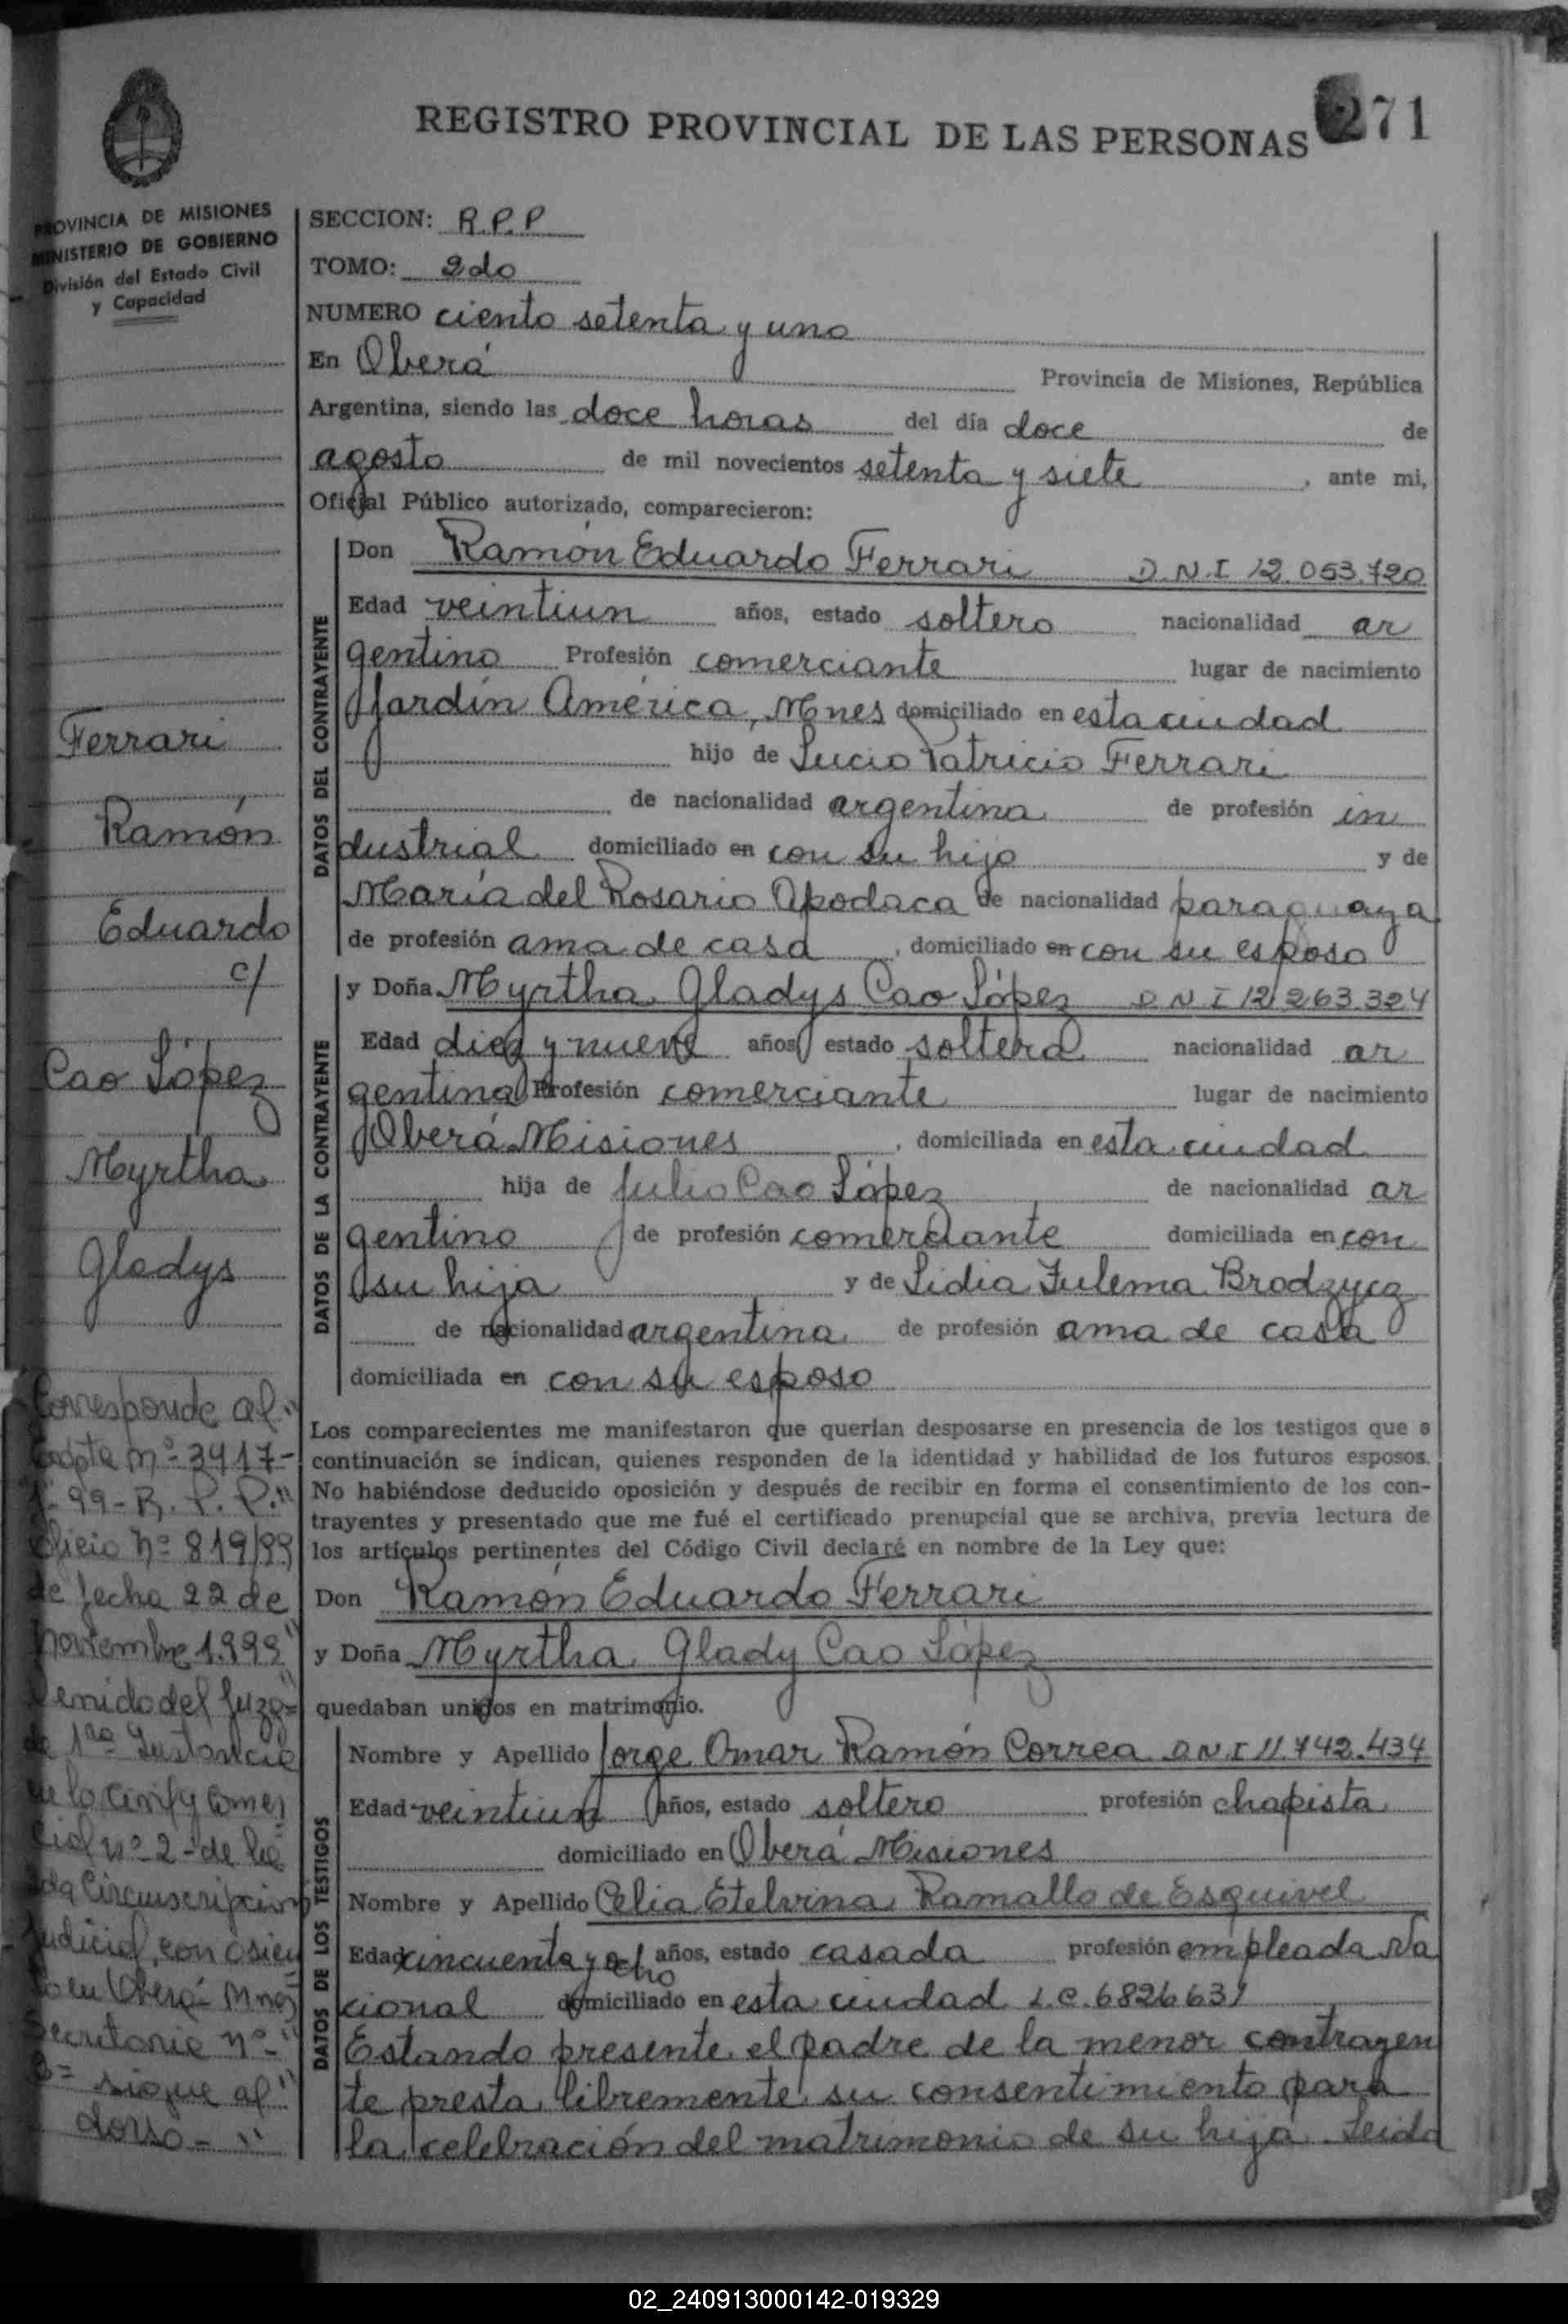 REGISTRO PROVINCIAL DE LAS PERSONAS
271
PROVINCIA DE MISIONES
MINISTERIO DE GOBIERNO
División del Estado Civil
y Capacidad
SECCION: R.P.P
TOMO: 2do
NUMERO ciento setenta y uno
En Oberá Provincia de Misiones, República
Argentina, siendo las doce horas del día doce de
agosto de mil novecientos setenta y siete, ante mi,
Oficial Público autorizado, comparecieron:
DATOS DEL CONTRAYENTE
Don Ramón Eduardo Ferrari D.N.I 12.053.720
Edad veintiun años, estado soltero nacionalidad ar
gentino Profesión comerciante lugar de nacimiento
Jardín América, Mnes domiciliado en esta ciudad
hijo de Lucio Patricio Ferrari
de nacionalidad argentina de profesión in
dustrial domiciliado en con su hijo y de
María del Rosario Apodaca de nacionalidad paraguaya
de profesión ama de casa, domiciliado en con su esposo
DATOS DE LA CONTRAYENTE
y Doña Myrtha Gladys Cao López D N I 12.263.324
Edad diez y nueve años estado soltera nacionalidad ar
gentina Profesión comerciante lugar de nacimiento
Oberá Misiones, domiciliada en esta ciudad
hija de Julio Cao López de nacionalidad ar
gentino de profesión comerciante domiciliada en con
su hija y de Lidia Zulema Brodzycz
de nacionalidad argentina de profesión ama de casa
domiciliada en con su esposo
Los comparecientes me manifestaron que querían desposarse en presencia de los testigos que a
continuación se indican, quienes responden de la identidad y habilidad de los futuros esposos.
No habiéndose deducido oposición y después de recibir en forma el consentimiento de los con-
trayentes y presentado que me fué el certificado prenupcial que se archiva, previa lectura de
los artículos pertinentes del Código Civil declaré en nombre de la Ley que:
Don Ramón Eduardo Ferrari
y Doña Myrtha Glady Cao López
quedaban unidos en matrimonio.
DATOS DE LOS TESTIGOS
Nombre y Apellido Jorge Omar Ramón Correa D.N.I 11.742.434
Edad veintiun años, estado soltero profesión chapista
domiciliado en Oberá Misiones
Nombre y Apellido Celia Etelvina Ramallo de Esquivel
Edad cincuenta y ocho años, estado casada profesión empleada Na
cional domiciliado en esta ciudad L.C. 6826631
Estando presente el padre de la menor contrayen
te presta libremente su consentimiento para
la celebración del matrimonio de su hija. Leida
Ferrari
Ramón
Eduardo
c/
Cao López
Myrtha
Gladys
Corresponde al"
Expte nº 3417-
99- R. P. P."
Oficio nº 819/99
de fecha 22 de
noviembre 1.999"
venido del Juzg=
de 1ra Instancia
de lo Civil y Comer
cial nº 2- de la
2da Circunscripcion
Judicial, con asien
to en Oberá Mnes
Secretaria nº"
sigue al"
dorso- "
02_240913000142-019329